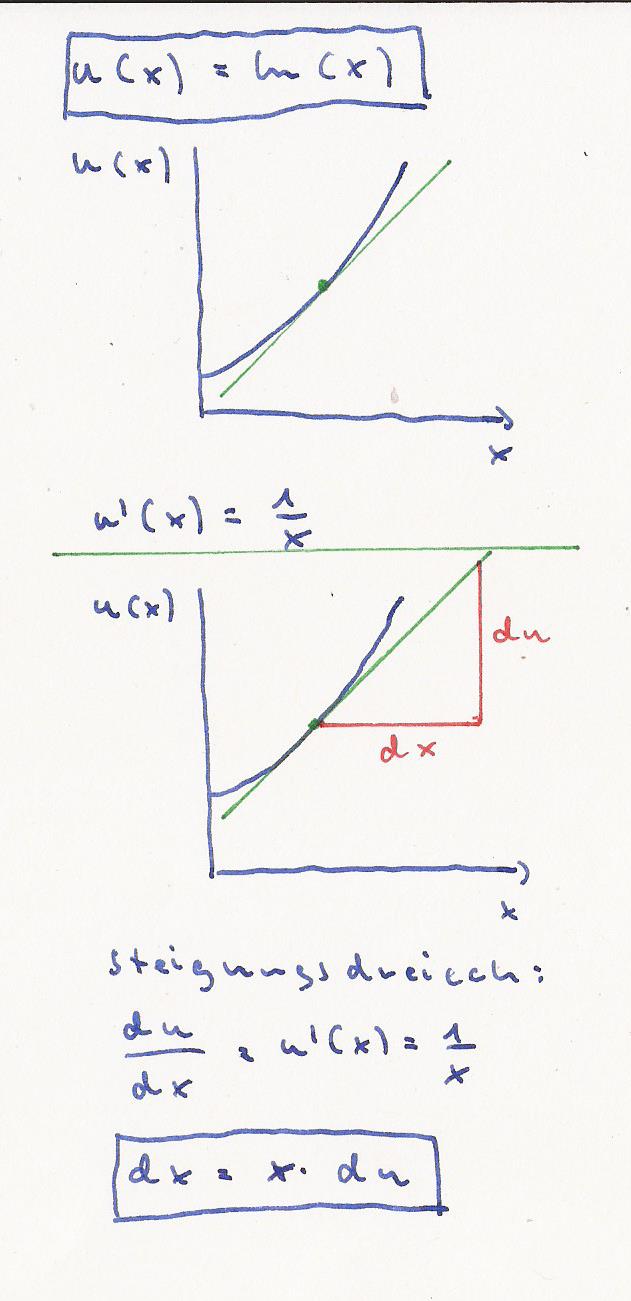 u(x) = ln(x)
u(x)
x
u'(x) = 1/x
u(x)
du
dx
x
Steigungsdreieck:
du/dx = u'(x) = 1/x
dx = x· du